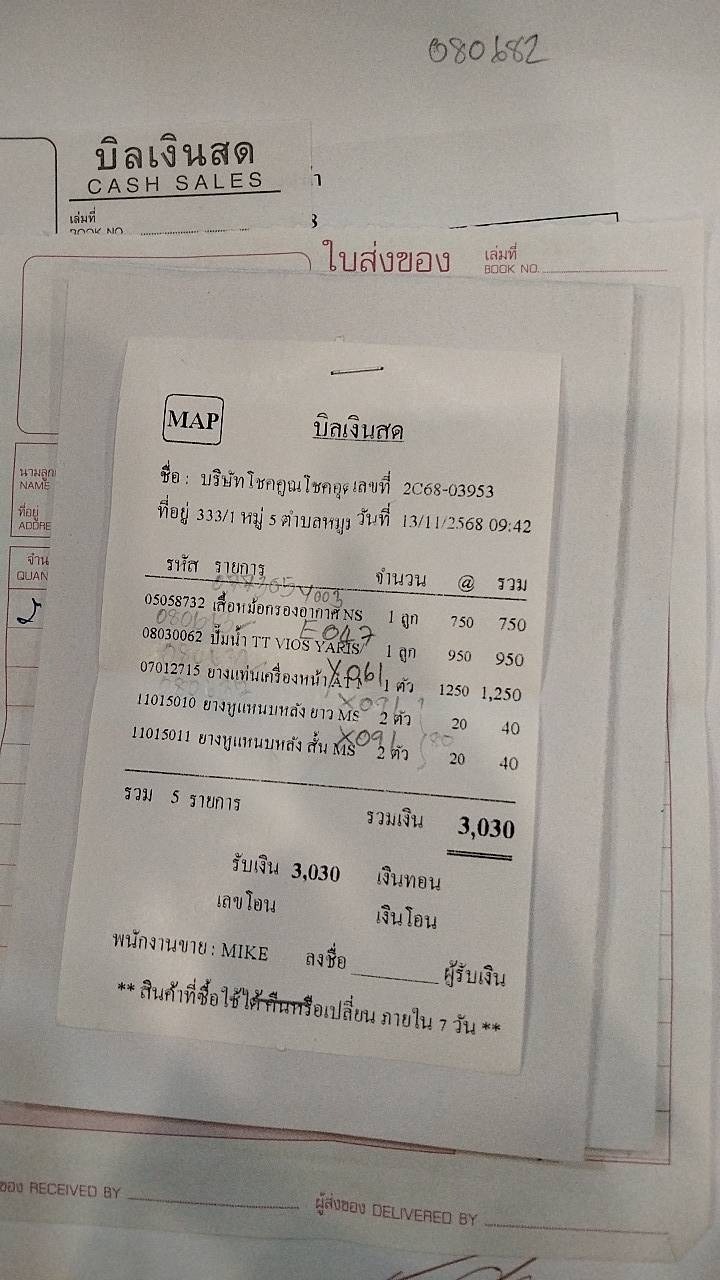 080682
บิลเงินสด
CASH SALES
เล่มที่
BOOK NO.
ใบส่งของ
เล่มที่
BOOK NO.
MAP
บิลเงินสด
ชื่อ : บริษัทโชคคูณโชคคูง เลขที่ 2C68-03953
ที่อยู่ 333/1 หมู่ 5 ตำบลหมูง วันที่ 13/11/2568 09:42
นามลูก
NAME
ที่อยู่
ADDRE
จำน
QUAN
รหัส รายการ จำนวน @ รวม
05058732 เสื้อหม้อกรองอากาศ NS 1 ลูก 750 750
E047
08030062 ปั๊มน้ำ TT VIOS YARIS/ 1 ลูก 950 950
X061
07012715 ยางแท่นเครื่องหน้า 1 ตัว 1250 1,250
X091
11015010 ยางหูแหนบหลัง ยาว MS 2 ตัว 20 40
X091
11015011 ยางหูแหนบหลัง สั้น MS 2 ตัว 20 40
รวม 5 รายการ รวมเงิน 3,030
รับเงิน 3,030 เงินทอน
เลขโอน เงินโอน
พนักงานขาย : MIKE ลงชื่อ ผู้รับเงิน
** สินค้าที่ซื้อใช้ได้ คืนหรือเปลี่ยน ภายใน 7 วัน **
ของ RECEIVED BY
ผู้ส่งของ DELIVERED BY